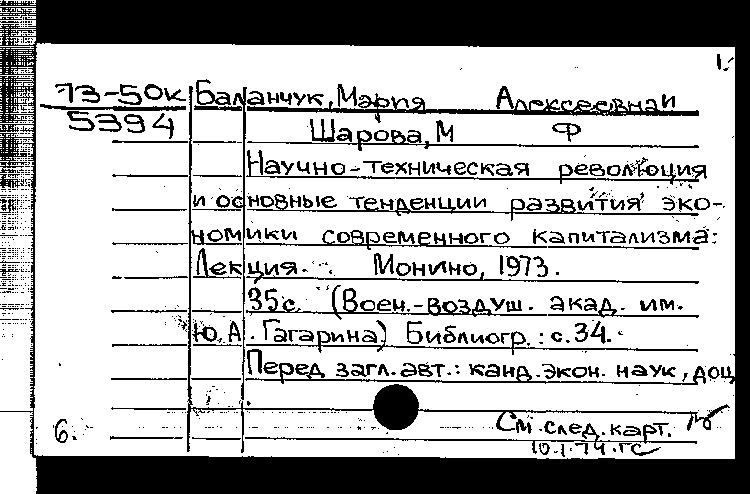 1.
73-50к Баланчук, Мария Алексеевна и
5394 Шарова, М Ф
Научно-техническая революция
и основные тенденции развития эко-
номики современного капитализма:
Лекция. Монино, 1973.
35с. (Воен.-воздуш. акад. им.
Ю.А. Гагарина) Библиогр.: с.34.
Перед загл. авт.: канд. экон. наук, доц
См. след. карт.
6.
10.1.74.гс